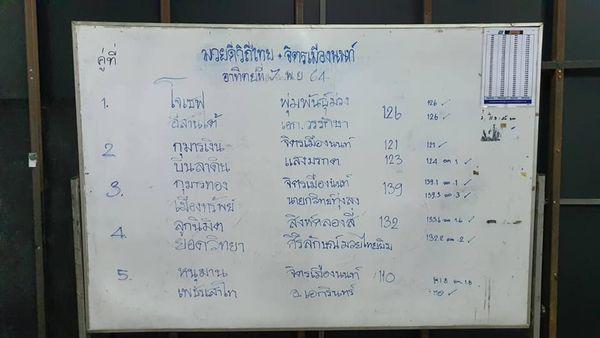 มวยดีวิถีไทย + จิตรเมืองนนท์
คู่ที่ อาทิตย์ที่ 7 พ.ย 64
1. โจเซฟ พุ่มพันธุ์ม่วง 126 126 ✓
ดีลานเต้ เอก. วรรศิษา 126 ✓
2 กุมารเงิน จิตรเมืองนนท์ 121 121 ✓
บินลาดิน แสงมรกต 123 124
3. กุมารทอง จิตรเมืองนนท์ 139 139.1
เมืองทรัพย์ นายกวิทย์ทุ่งสง 139.3
4. ลูกนิมิต สิงห์คลองสี่ 132
ยอดวิทยา ศิริลักษณ์มวยไทยยิม 132.2
5. หนุมาน จิตรเมืองนนท์ 110
เพชรเสำโท อ.เอกรินทร์ 110 ✓